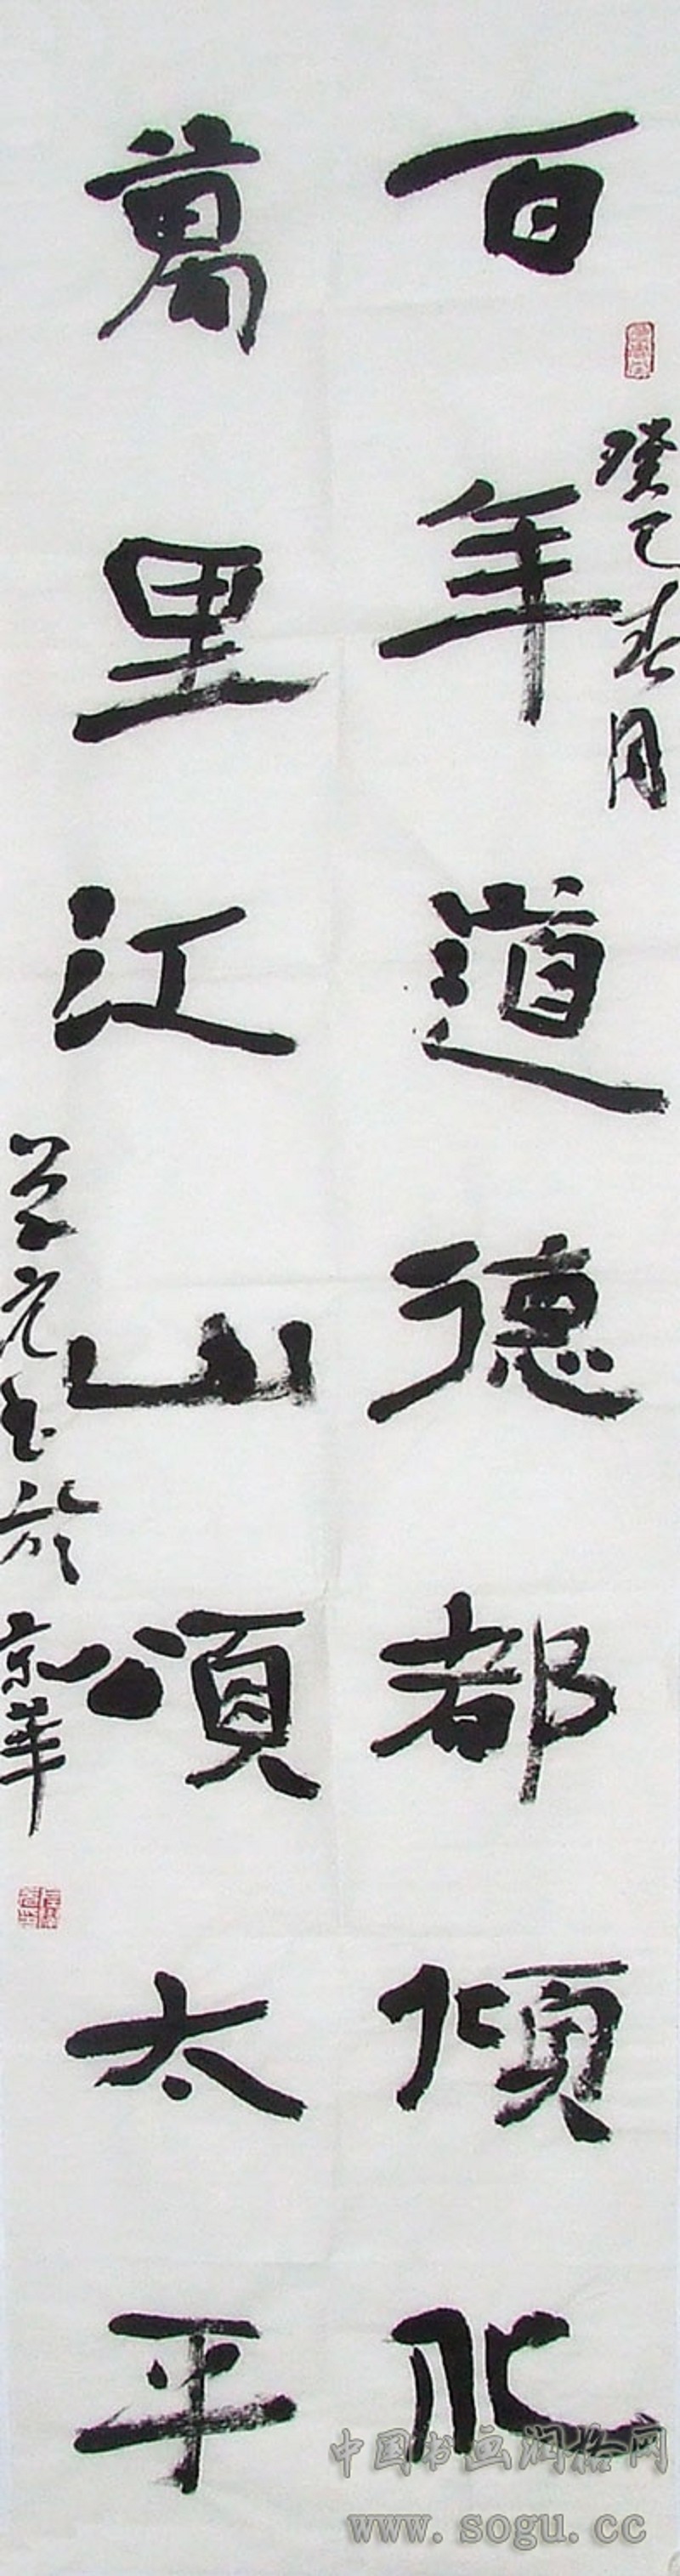 百年道德都傾化
癸巳春月
萬里江山頌太平
书於京華
中国书画润格网
www.sogu.cc